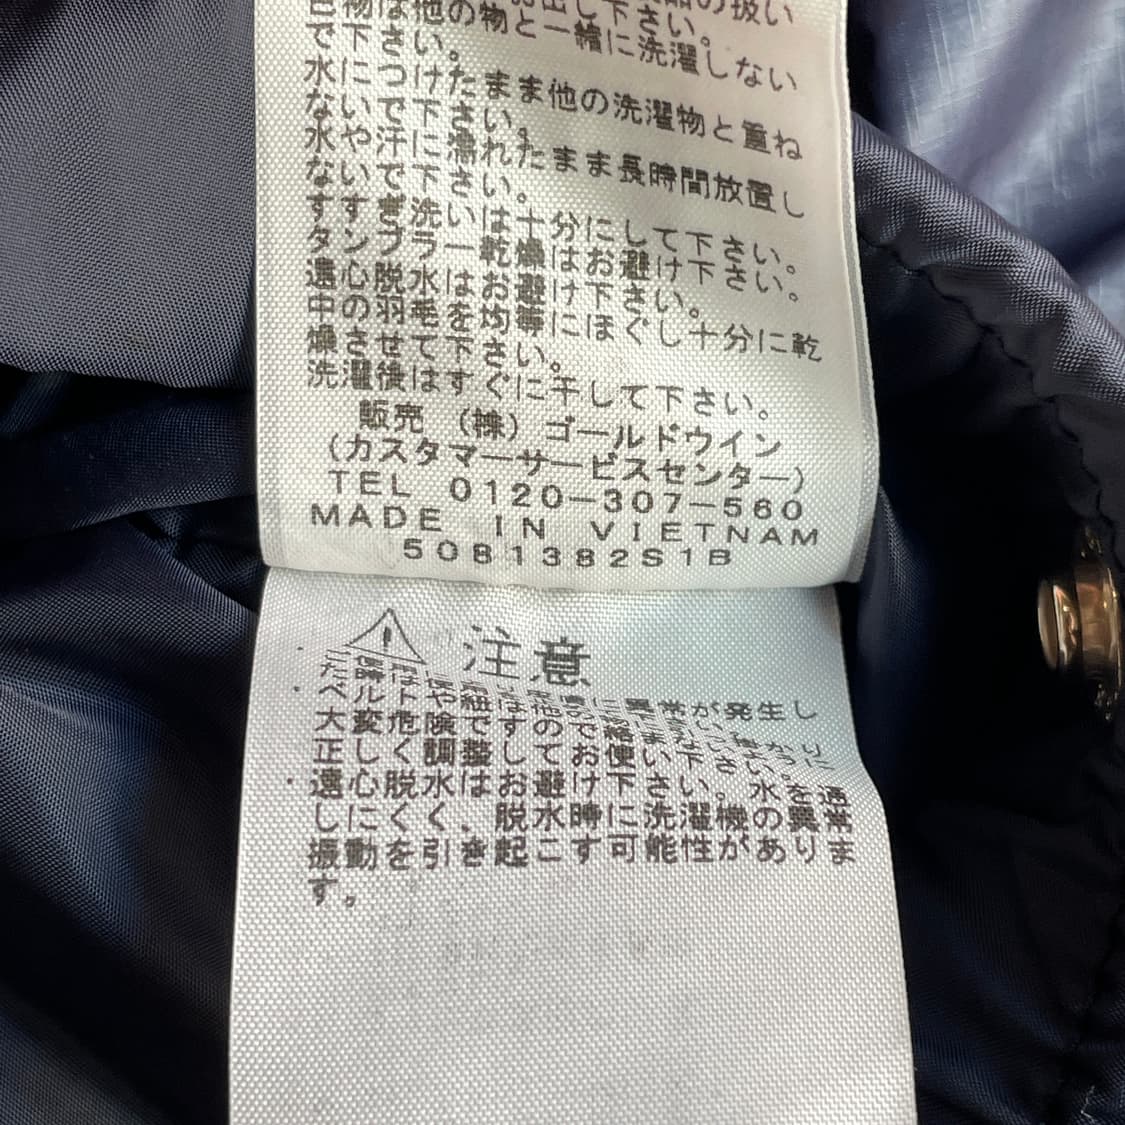 品の扱い
お出し下さい。
物は他の物と一緒に洗濯しない
で下さい。
水につけたまま他の洗濯物と重ね
ないで下さい。
水や汗に濡れたまま長時間放置し
ないで下さい。
すすぎ洗いは十分にして下さい。
タンブラー乾燥はお避け下さい。
遠心脱水はお避け下さい。
中の羽毛を均等にほぐし十分に乾
燥させて下さい。
洗濯後はすぐに干して下さい。
販売 (株) ゴールドウイン
(カスタマーサービスセンター)
TEL 0120-307-560
MADE IN VIETNAM
5081382S1B
注意
異常が発生し
大変危険ですので
正しく調整してお使い下さい。
・遠心脱水はお避け下さい。水を通
しにくく、脱水時に洗濯機の異常
振動を引き起こす可能性がありま
す。